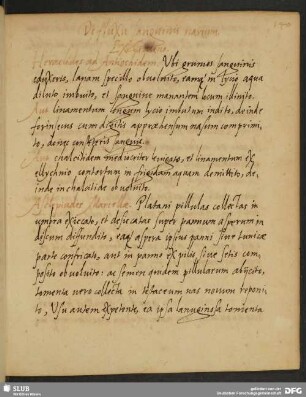 De fluxu sanguinis narium
Heraclides ad Antiochidem. Ubi grumos sanguinis
eduxeris, lanam specillo obvoluito, eamque in lycio aqua
diluto imbuito, et sanguine manantem locum illinito.
Aut linamentum longum lycio imbutum indito, deinde
forinsecus cum digitis apprehensum nasum comprimi-
to, donec constiterit sanguis.
Aut chalcitidem mediocriter terito, et linamentum ex
ellychnio contortum in frigidam aquam demittito, de-
inde in chalcitide obvoluito.
Asclepiades Marcellae. Platani pillulas collectas in
umbra exiccato, et desiccatas super pannum asperum in
discum diffundito, eas aspera ipsius panni sive tunicae
parte confricato, aut in panno ex pilis sive setis com-
posito obvoluito: ac semen quidem pillularum abijcito,
tomenta vero collecta in testaceum vas novum reponi-
to, Usu autem expetente, ea ipsa lanuginosa tomenta
SLUB
DFG